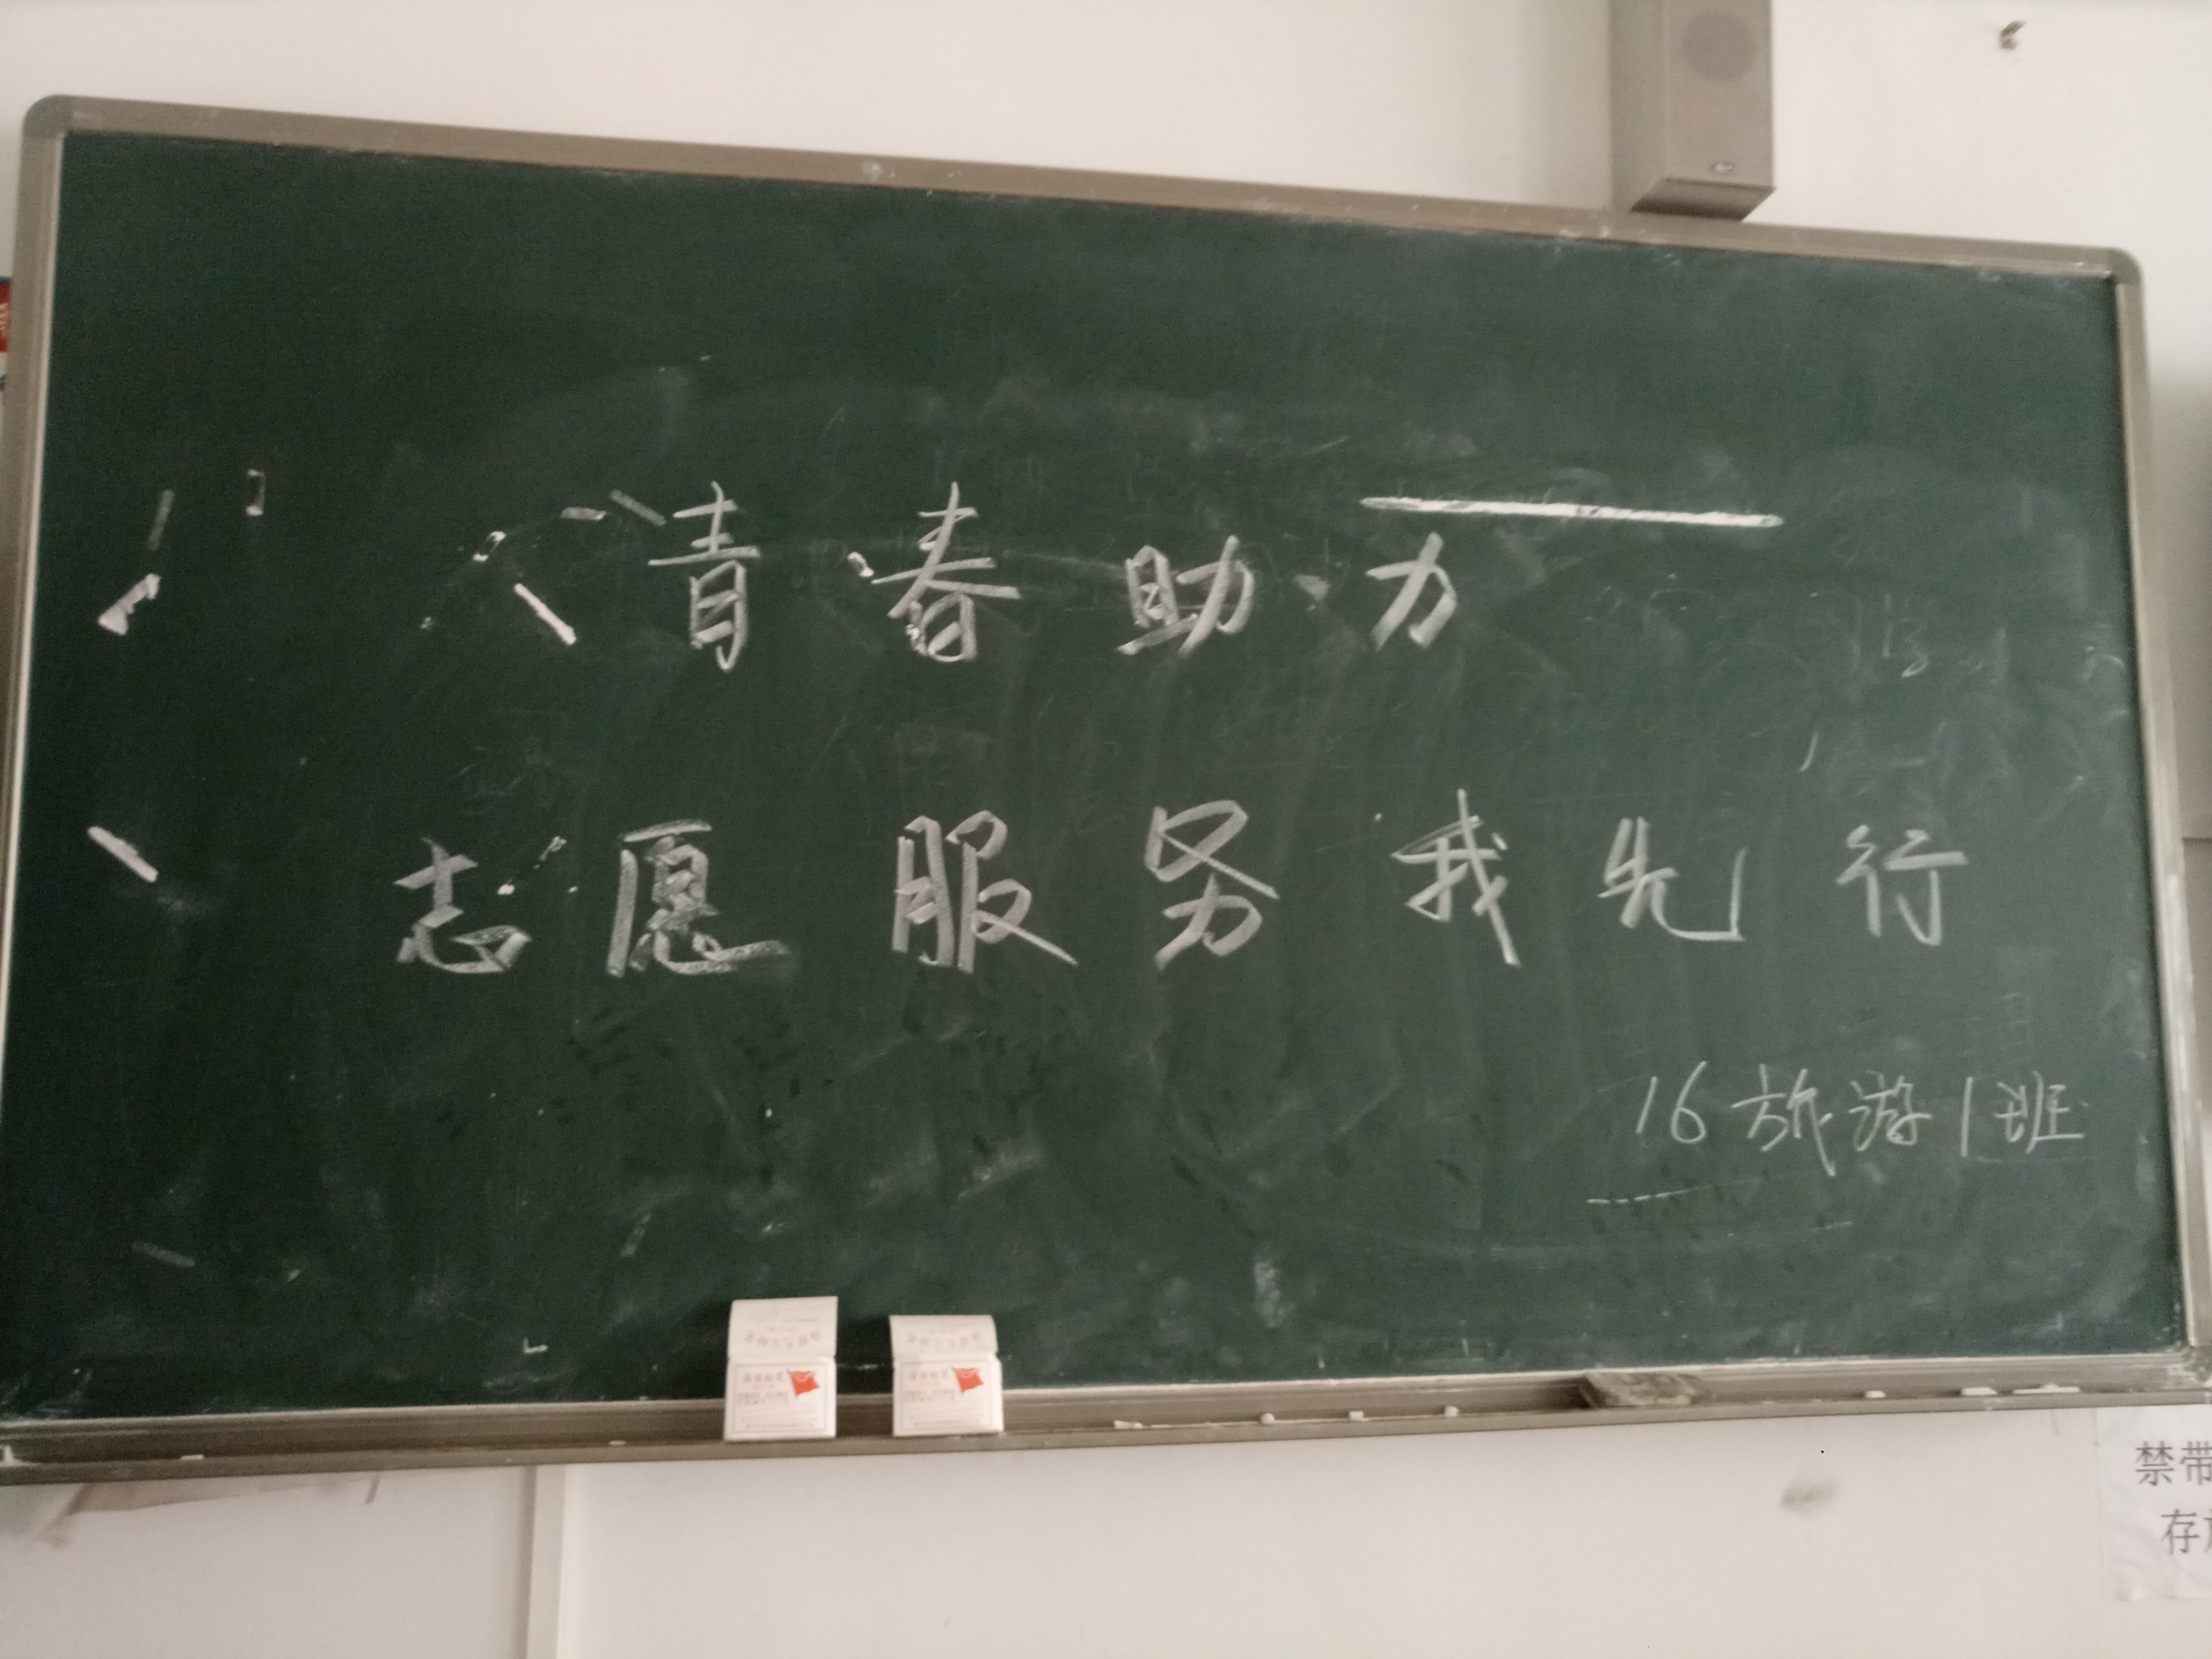 青春助力
志愿服务我先行
16旅游1班
禁带
存